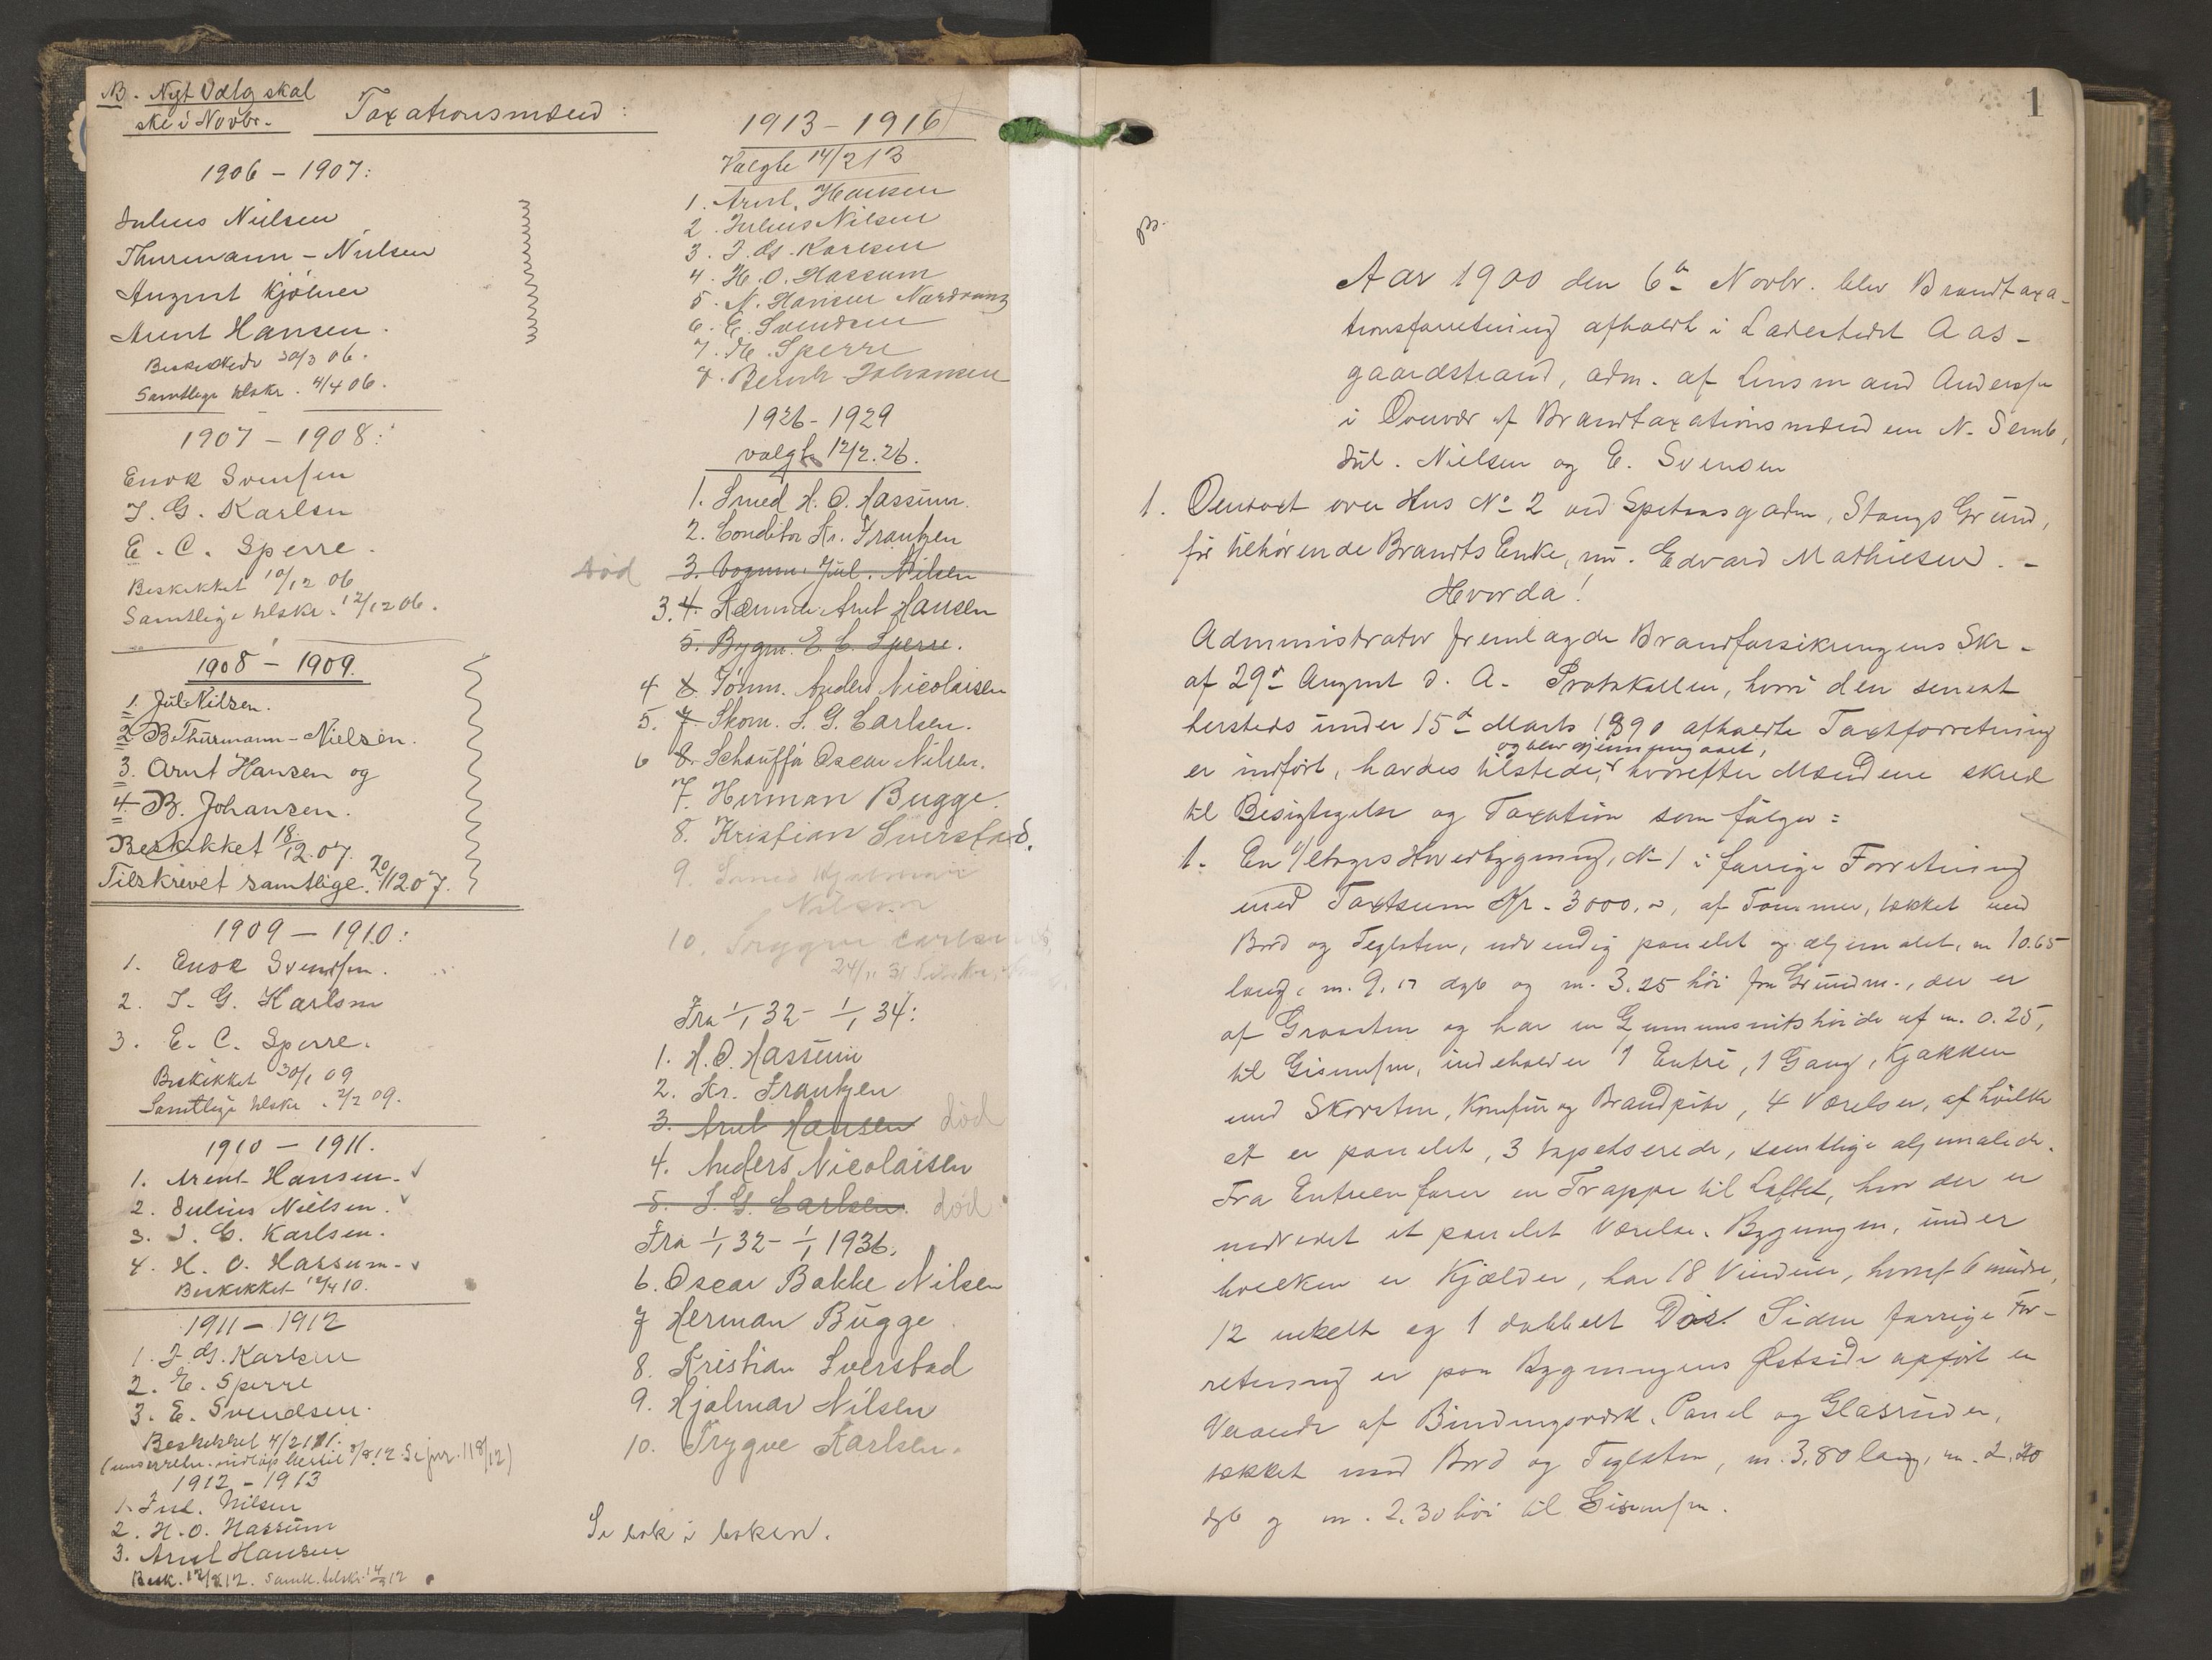 NB. Nyt Valg skal
ske i Novbr.
Taxationsmænd:
1906 – 1907:
Julius Nielsen
Thurmann – Nielsen
August Kjölner
Arent Hansen.
Beskikkede 30/3 06.
Samtlige tilskr. 4/4 06.
1907 – 1908:
Enok Svensen
I. G. Karlsen
E. C. Sperre.
Beskikket 10/12 06
Samtlige tilskr. 12/12 06.
1908 – 1909.
1. Jul Nilsen.
2. B. Thurmann – Nielsen.
3. Arnt Hansen og
4. B. Johansen.
Beskikket 18/12.07.
Tilskrevet samtlige. 20/12 07.
1909 – 1910:
1. Enok Svendsen.
2. I. G. Karlsen
3. E. C. Sperre.
Beskikket 30/1 09
Samtlige tilskr. 2/2 09.
1910 – 1911.
1. Arent Hansen.
2. Julius Nielsen.
3. I. G. Karlsen.
4. H. O. Hassum.
Beskikket 12/4 10.
1911 – 1912
1. I. G. Karlsen
2. E. Sperre
3. E. Svendsen.
Beskikket 4/2 11.
1912 – 1913
1. Jul. Nilsen
2. H. O. Hassum
3. Arnt Hansen
Besk. 12/2 12. Samtl. tilskr. 14/2 12
1913 – 1916
Valgte 14/2 13
1. Arnt. Hansen
2. Julius Nilsen
3. I. G. Karlsen
4. H. O. Hassum
5. N. Hansen Nordvang
6. E. Svendsen
7. E. Sperre
8. Bernh. Johansen
1926 – 1929
valgt 12/2. 26.
1. Smed H. O. Hassum.
2. Conditor Kr. Frantzen
død 3. Vognm. Jul. Nilsen
3. 4. Arnt Hansen
5. Bygm. E. C. Sperre.
4 6. Tömm. Anders Nicolaisen
5. 7. Skom. I. G. Carlsen.
6 8. Schauffór Oscar Nilsen.
7. Herman Bugge.
8. Kristian Sverstad.
9. Smed Hjalmar
Nilsen
10. Tryggve Carlsen
Fra 1/1 32 – 1/1 34:
1. H. O. Hassum
2. Kr. Frantzen
3. Arnt Hansen død
4. Anders Nicolaisen
5. I. G. Carlsen. død
Fra 1/1 32 – 1/1 1936.
6. Oscar Bakke Nilsen
7 Herman Bugge
8. Kristian Sverstad
9. Hjalmar Nilsen
10. Trygve Karlsen.
Se bak i boken.
1
Aar 1900 den 6te Novbr. blev Brandtaxa-
tionsforretning afholdt i Ladestedet Aas-
gaardstrand, adm. af Lensmand Anderssen
i Overvær af Brandtaxationsmændene N. Semb,
Jul. Nielsen og E. Svensen
1. Omtaxt over Hus No 2 ved Spetaasgaden, Stangs Grund,
för tilhörende Brandts Enke, nu. Edvard Mathiesen. –
Hvorda!
Administrator fremlagde Brandforsikringens Skr.
af 29de August d. A. Protokollen, hvori den senest
hersteds under 15de Marts 1890 afholdte Taxtforretning
er indfört, havdes tilstede, og blev gjennemgaaet, hvorefter Mændene skred
til Besigtigelse og Taxation som fölger:
1. En 1 etages Hovedbygning, No 1 i forrige Forretning
med Taxtsum Kr. 3000, af Tömmer, tækket med
Bord og Teglsten, udvendig panelet og oljemalet, m 10.65
lang, m. 9.17 dyb og m. 3.25 höi fra Grundm., der er
af Graasten og har en Gjennemsnitshöide af m. 0.25,
til Gesimsen, indeholder 1 Entré, 1 Gang, Kjökken
med Skorsten, Komfur og Brandpibe, 4 Værelser, af hvilke
et er panelet, 3 tapetserede, samtlige oljemalede.
Fra Entreen förer en Trappe til Loftet, hvor der er
indredet et panelet Værelse. Bygningen, under
hvilken er Kjælder, har 18 Vinduer, hvoraf 6 mindre,
12 enkelt og 1 dobbelt Dör. Siden forrige For-
retning er paa Bygningens Østside opfört en
Veranda af Bindingsværk, Panel og Glasruder,
tækket med Bord og Teglsten, m. 3,80 lang, m. 2.20
dyb og m. 2.30 höi til Gesimsen.